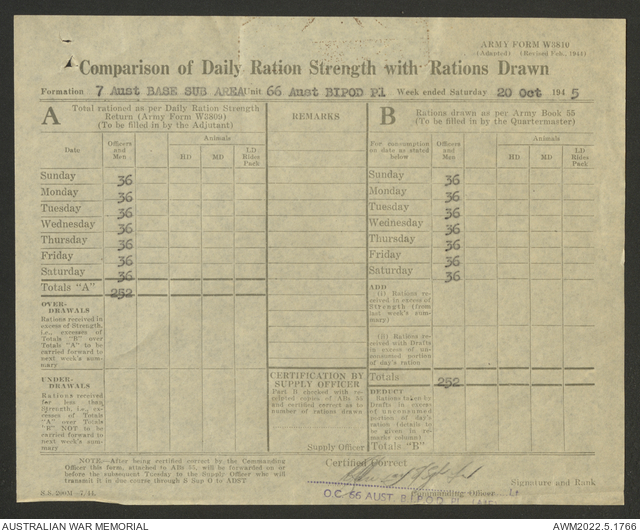 ARMY FORM W3810
(Adapted) (Revised Feb., 1944)
Comparison of Daily Ration Strength with Rations Drawn
Formation 7 Aust BASE SUB AREA Unit 66 Aust BIPOD Pl Week ended Saturday 20 Oct 1945
A
Total rationed as per Daily Ration Strength
Return (Army Form W3809)
(To be filled in by the Adjutant)
REMARKS
B
Rations drawn as per Army Book 55
(To be filled in by the Quartermaster)
Date
Officers and Men
Animals
HD
MD
LD Rides Pack
For consumption on date as stated below
Officers and Men
Animals
HD
MD
LD Rides Pack
Sunday 36
Monday 36
Tuesday 36
Wednesday 36
Thursday 36
Friday 36
Saturday 36
Totals "A" 252
Sunday 36
Monday 36
Tuesday 36
Wednesday 36
Thursday 36
Friday 36
Saturday 36
OVER-
DRAWALS
Rations received in
excess of Strength,
i.e., excesses of
Totals "B" over
Totals "A" to be
carried forward to
next week's sum-
mary
UNDER-
DRAWALS
Rations received
for less than
Strength, i.e., ex-
cesses of Totals
"A" over Totals
"B" NOT to be
carried forward to
next week's sum-
mary
CERTIFICATION BY
SUPPLY OFFICER
Part B checked with re-
ceipted copies of ABs 55
and certified correct as to
number of rations drawn
Supply Officer
ADD
(i) Rations re-
ceived in excess of
Strength (from
last week's sum-
mary)
(ii) Rations re-
ceived with Drafts
in excess of un-
consumed portion
of day's ration
Totals 252
DEDUCT
Rations taken by
Drafts in excess
of unconsumed
portion of day's
ration (details to
be given in re-
marks column)
Totals "B"
NOTE—After being certified correct by the Commanding
Officer this form, attached to ABs 55, will be forwarded on or
before the subsequent Tuesday to the Supply Officer who will
transmit it in due course through S Sup O to ADST
Certified Correct
Commanding Officer
Signature and Rank
O.C 66 AUST BIPOD Pl
AUSTRALIAN WAR MEMORIAL
AWM2022.5.1766